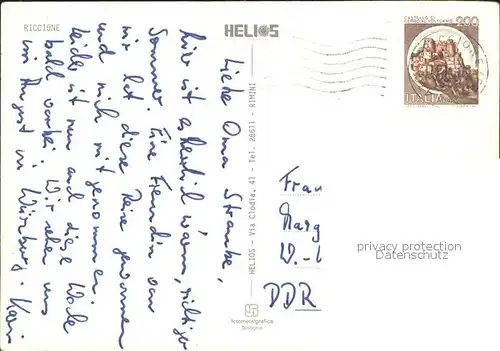 RICCIONE
HELIOS
Liebe Oma Straube,
hier ist es herrlich warm, richtiger
Sommer. Eine Freundin von
mir hat diese Reise gewonnen
und mich mitgenommen.
Leider ist nun auch diese Woche
bald vorbei. Wir sehen uns
im August in Würzburg. Kari
HELIOS - Via Clodia, 41 - Tel. 28611 - RIMINI
fotometalgrafica
Bologna
200
ITALIA
Frau
Marg
W.-L
DDR
privacy protection
Datenschutz